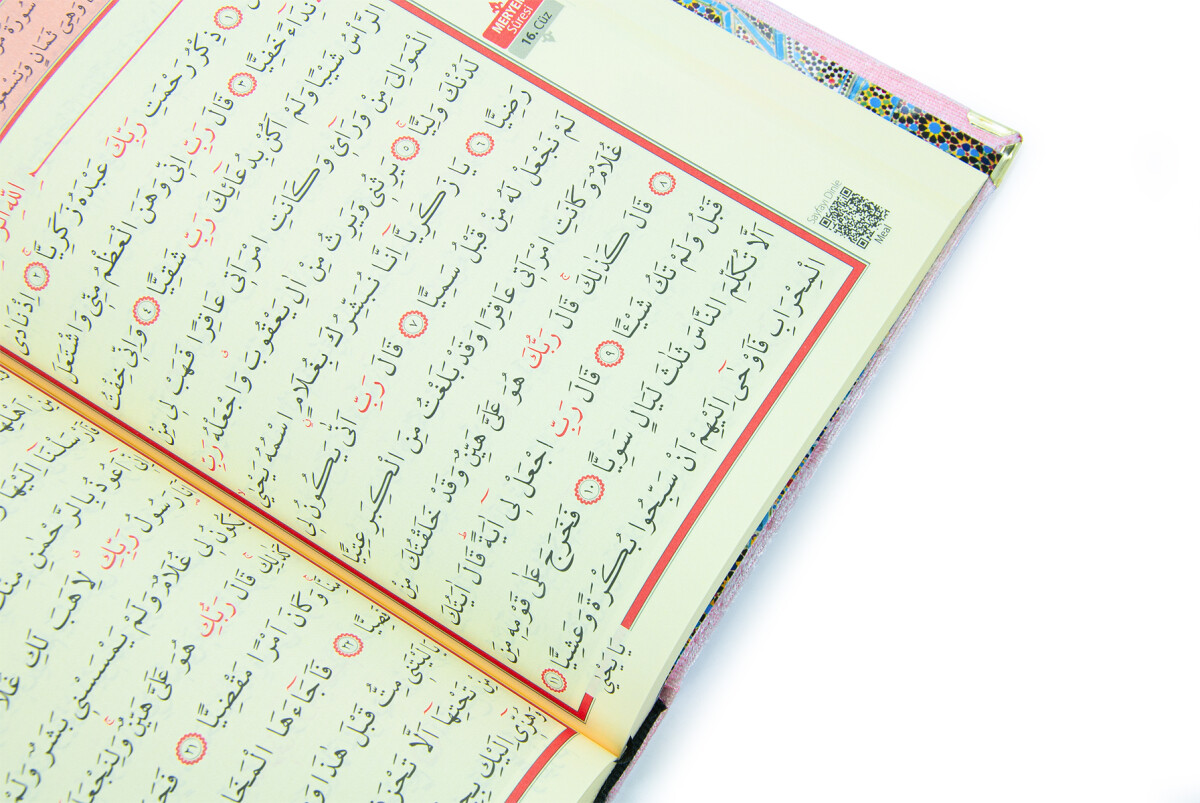 MERYE
Sûresi
16. Cüz
وَهِيَ ثَمَانٍ وَتِسْعُو
اللّٰهِ
١ ذِكْرُ رَحْمَتِ رَبِّكَ عَبْدَهُ زَكَرِيَّا ٢ اِذْ نَادٰى
نِدَٓاءً خَفِيًّا ٣ قَالَ رَبِّ اِنّ۪ي وَهَنَ الْعَظْمُ مِنّ۪ي وَاشْتَعَلَ
الرَّأْسُ شَيْبًا وَلَمْ اَكُنْ بِدُعَٓائِكَ رَبِّ شَقِيًّا ٤ وَاِنّ۪ي خِفْتُ
الْمَوَالِيَ مِنْ وَرَٓاء۪ي وَكَانَتِ امْرَاَت۪ي عَاقِرًا فَهَبْ ل۪ي مِنْ
لَدُنْكَ وَلِيًّا ٥ يَرِثُن۪ي وَيَرِثُ مِنْ اٰلِ يَعْقُوبَ وَاجْعَلْهُ رَبِّ
رَضِيًّا ٦ يَا زَكَرِيَّٓا اِنَّا نُبَشِّرُكَ بِغُلَامٍ اسْمُهُ يَحْيٰى
لَمْ نَجْعَلْ لَهُ مِنْ قَبْلُ سَمِيًّا ٧ قَالَ رَبِّ اَنّٰى يَكُونُ ل۪ي
غُلَامٌ وَكَانَتِ امْرَاَت۪ي عَاقِرًا وَقَدْ بَلَغْتُ مِنَ الْكِبَرِ عِتِيًّا
٨ قَالَ كَذٰلِكَ قَالَ رَبُّكَ هُوَ عَلَيَّ هَيِّنٌ وَقَدْ خَلَقْتُكَ مِنْ
قَبْلُ وَلَمْ تَكُ شَيْـًٔا ٩ قَالَ رَبِّ اجْعَلْ ل۪ٓي اٰيَةً قَالَ اٰيَتُكَ
اَلَّا تُكَلِّمَ النَّاسَ ثَلٰثَ لَيَالٍ سَوِيًّا ١٠ فَخَرَجَ عَلٰى قَوْمِه۪ مِنَ
الْمِحْرَابِ فَاَوْحٰٓى اِلَيْهِمْ اَنْ سَبِّحُوا بُكْرَةً وَعَشِيًّا ١١
يَا يَحْيٰى
Sayfayı Dinle
Meal
اَهْلِهَا
اِلَيْهَا
اَعُوذُ بِالرَّحْمٰنِ مِنْكَ
رَسُولُ رَبِّكِ لِاَهَبَ لَكِ
غُلَامٌ وَلَمْ يَمْسَسْن۪ي بَشَرٌ وَلَمْ
قَالَ رَبُّكِ هُوَ عَلَيَّ هَيِّنٌ وَلِنَجْعَلَ
وَكَانَ اَمْرًا مَقْضِيًّا ٢١
٢٢ فَاَجَٓاءَهَا
مِتُّ قَبْلَ هٰذَا
تَحْتِهَٓا اَلَّا
وَهُزّ۪ٓي اِلَيْكِ